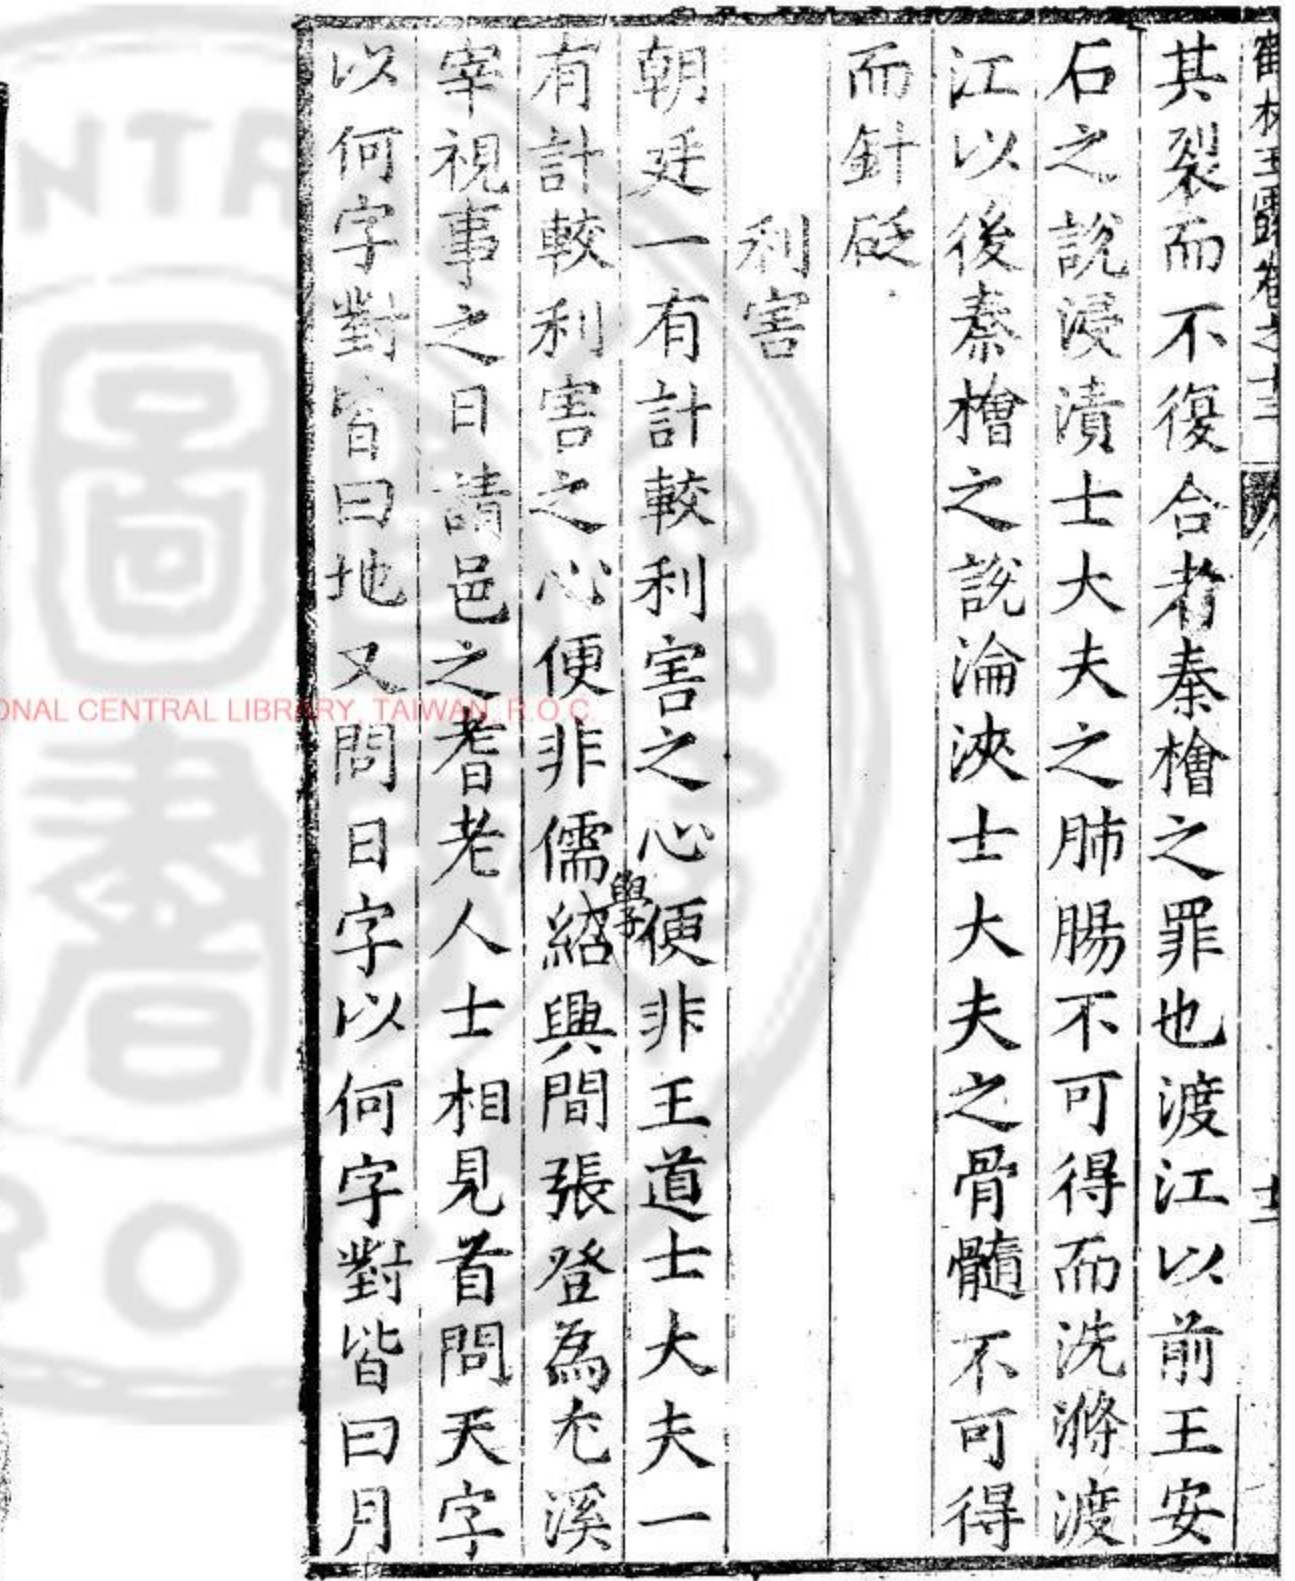 鶴林玉露卷之十三
十一
其裂而不復合者秦檜之罪也渡江以前王安
石之說浸漬士大夫之肺腸不可得而洗滌渡
江以後秦檜之說淪浹士大夫之骨髓不可得
而針砭
利害
朝廷一有計較利害之心便非王道士大夫一
有計較利害之心便非儒學紹興間張登為尤溪
宰視事之日請邑之耆老人士相見首問天字
以何字對皆曰地又問日字以何字對皆曰月
圖書
NATIONAL CENTRAL LIBRARY, TAIWAN, R.O.C.